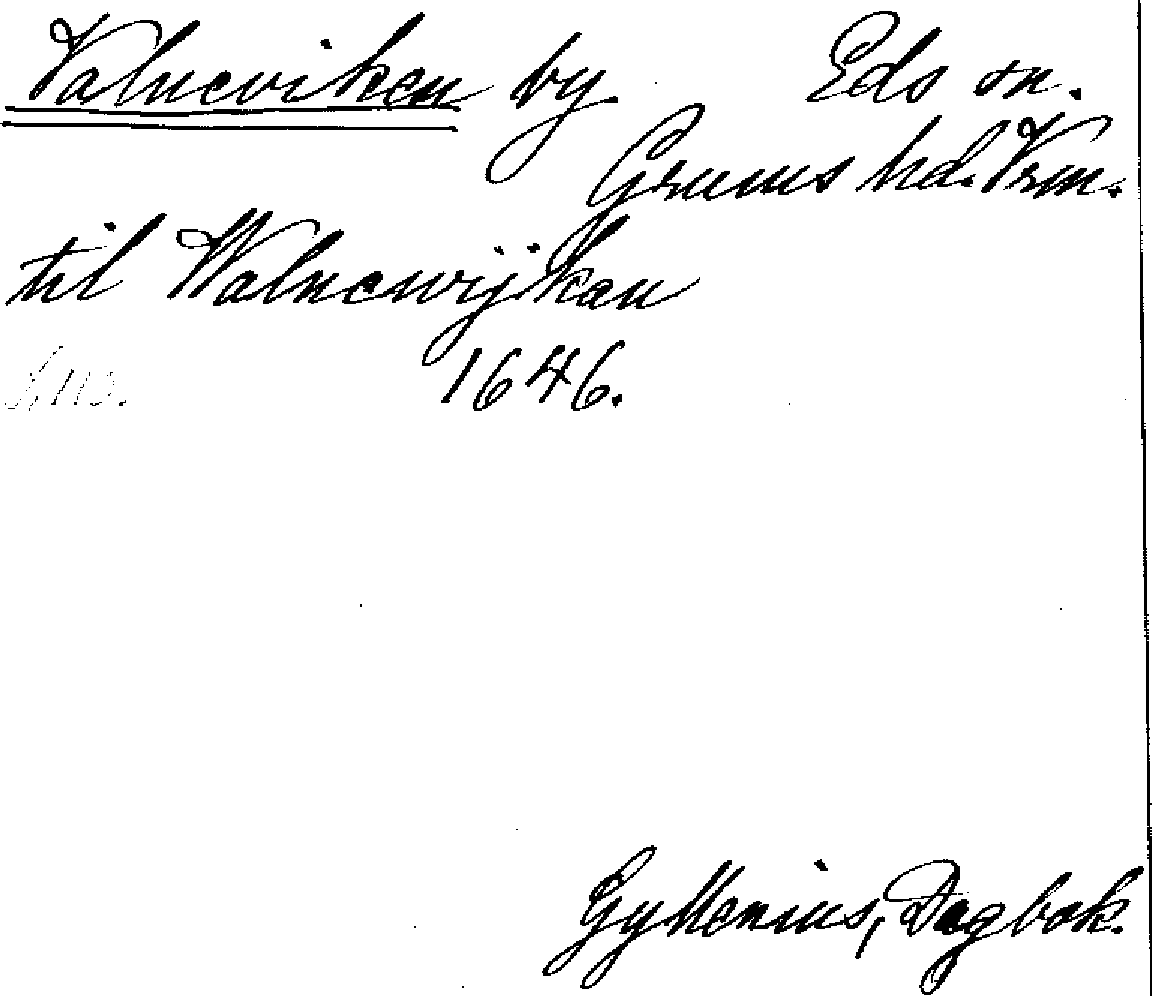 Valneviken by Eds sn.
Grums hd. Vrm.
til Walnewijkan
1646.
Gyllenius, Dagbok.